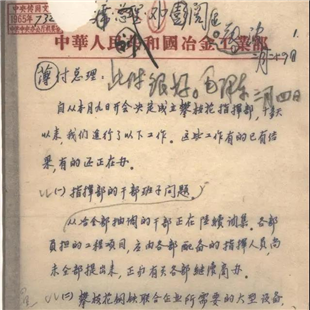 1965年
732
中華人民共和國冶金工業部
薄付总理：
此件很好。毛泽东
二月四日
自从本月九日开会决定成立攀枝花指挥部，十数天
以来，我们进行了以下工作。这些工作有的已有结
果，有的还正在办。
(一) 指挥部的干部班子问题。
从冶金部抽调的干部正在陆续调集。各部
负担的工程项目，应由各部配备的指挥人员，尚
未全部提出来，正和有关各部继续商办。
(二) 攀枝花钢铁联合企业所需要的大型设备，